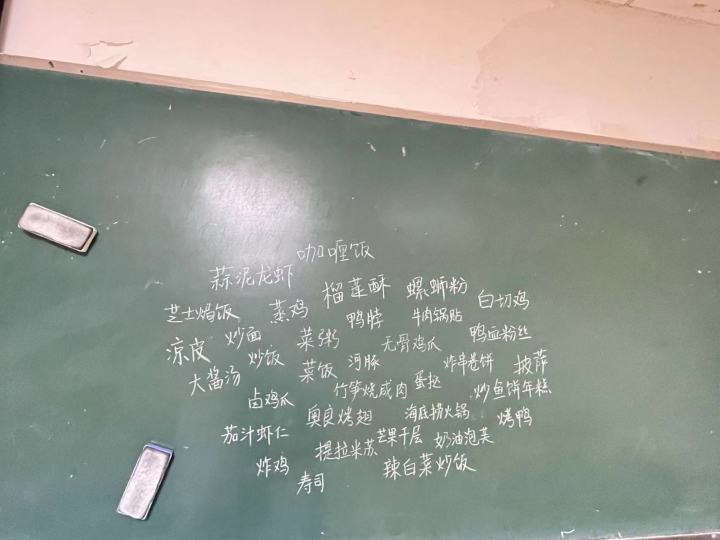 咖喱饭
蒜泥龙虾
榴莲酥 螺蛳粉 白切鸡
芝士焗饭 蒸鸡 鸭脖 牛肉锅贴
凉皮 炒面 菜粥 无骨鸡爪 鸭血粉丝
炒饭 河豚 炸串卷饼 披萨
大酱汤 菜饭 竹笋烧咸肉 蛋挞 炒鱼饼年糕
卤鸡爪 奥良烤翅 海底捞火锅 烤鸭
茄汁虾仁 提拉米苏 芒果千层 奶油泡芙
炸鸡 辣白菜炒饭
寿司